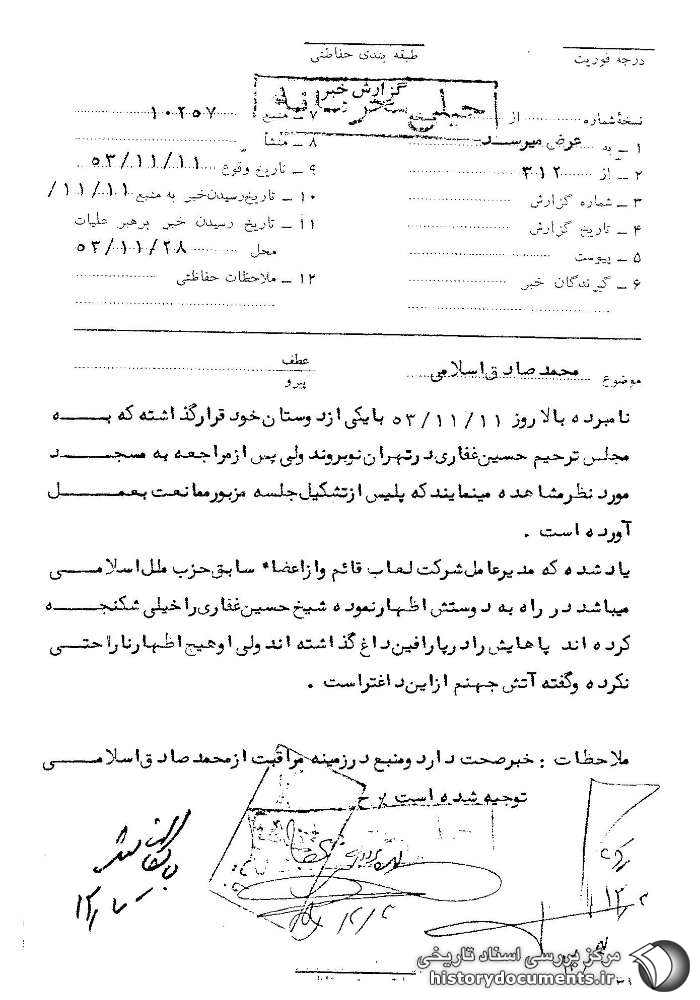 درجه فوریت
طبقه بندی حفاظتی
گزارش خبر
خیلی محرمانه
نسخهٔ شماره از نسخه
۱ ـ به عرض میرسد
۲ ـ از ۳۱۲
۳ ـ شماره گزارش
۴ ـ تاریخ گزارش
۵ ـ پیوست
۶ ـ گیرندگان خبر
۷ ـ منبع ۱۰۲۵۷
۸ ـ منشأ
۹ ـ تاریخ وقوع ۵۳/۱۱/۱۱
۱۰ ـ تاریخ رسیدن خبر به منبع ۱۱/۱۱/
۱۱ ـ تاریخ رسیدن خبر برهبر عملیات
محل ۵۳/۱۱/۲۸
۱۲ ـ ملاحظات حفاظتی
موضوع محمد صادق اسلامی
عطف
پیرو
نامبرده بالا روز ۵۳/۱۱/۱۱ با یکی از دوستان خود قرار گذاشته که به
مجلس ترحیم حسین غفاری در تهران نو بروند ولی پس از مراجعه به مسجد
مورد نظر مشاهده مینمایند که پلیس از تشکیل جلسه مزبور ممانعت بعمل
آورده است .
یاد شده که مدیرعامل شرکت لعاب قائم و از اعضاء سابق حزب ملل اسلامی
میباشد در راه به دوستش اظهار نموده شیخ حسین غفاری را خیلی شکنجه
کرده اند پاهایش را در پارافین داغ گذاشته اند ولی او هیچ اظهار ناراحتی
نکرده و گفته آتش جهنم از این داغتر است .
ملاحظات : خبر صحت دارد و منبع در زمینه مراقبت از محمد صادق اسلامی
توجیه شده است
مرکز بررسی اسناد تاریخی
historydocuments.ir